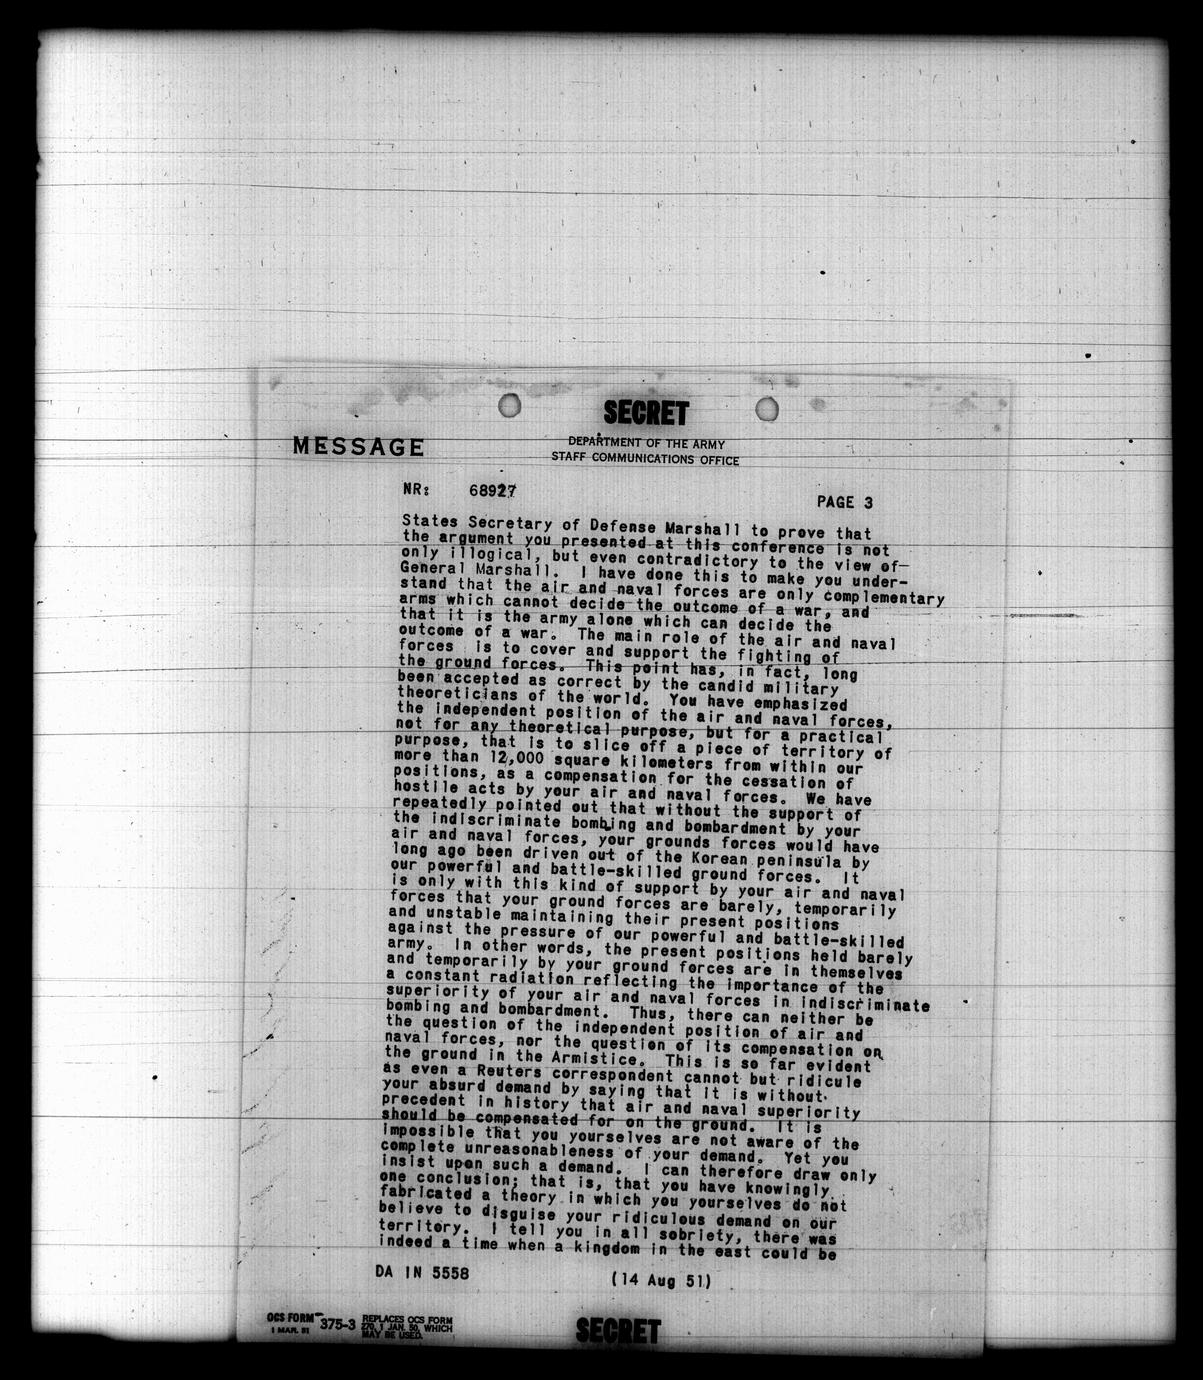 SECRET
MESSAGE
DEPARTMENT OF THE ARMY
STAFF COMMUNICATIONS OFFICE
NR: 68927
PAGE 3
States Secretary of Defense Marshall to prove that
the argument you presented at this conference is not
only illogical, but even contradictory to the view of—
General Marshall. I have done this to make you under-
stand that the air and naval forces are only complementary
arms which cannot decide the outcome of a war, and
that it is the army alone which can decide the
outcome of a war. The main role of the air and naval
forces is to cover and support the fighting of
the ground forces. This point has, in fact, long
been accepted as correct by the candid military
theoreticians of the world. You have emphasized
the independent position of the air and naval forces,
not for any theoretical purpose, but for a practical
purpose, that is to slice off a piece of territory of
more than 12,000 square kilometers from within our
positions, as a compensation for the cessation of
hostile acts by your air and naval forces. We have
repeatedly pointed out that without the support of
the indiscriminate bombing and bombardment by your
air and naval forces, your grounds forces would have
long ago been driven out of the Korean peninsula by
our powerful and battle-skilled ground forces. It
is only with this kind of support by your air and naval
forces that your ground forces are barely, temporarily
and unstable maintaining their present positions
against the pressure of our powerful and battle-skilled
army. In other words, the present positions held barely
and temporarily by your ground forces are in themselves
a constant radiation reflecting the importance of the
superiority of your air and naval forces in indiscriminate
bombing and bombardment. Thus, there can neither be
the question of the independent position of air and
naval forces, nor the question of its compensation on
the ground in the Armistice. This is so far evident
as even a Reuters correspondent cannot but ridicule
your absurd demand by saying that it is without
precedent in history that air and naval superiority
should be compensated for on the ground. It is
impossible that you yourselves are not aware of the
complete unreasonableness of your demand. Yet you
insist upon such a demand. I can therefore draw only
one conclusion; that is, that you have knowingly
fabricated a theory in which you yourselves do not
believe to disguise your ridiculous demand on our
territory. I tell you in all sobriety, there was
indeed a time when a kingdom in the east could be
DA IN 5558
(14 Aug 51)
OCS FORM 375-3 REPLACES OCS FORM
1 MAR. 51 270, 1 JAN. 50, WHICH
MAY BE USED.
SECRET